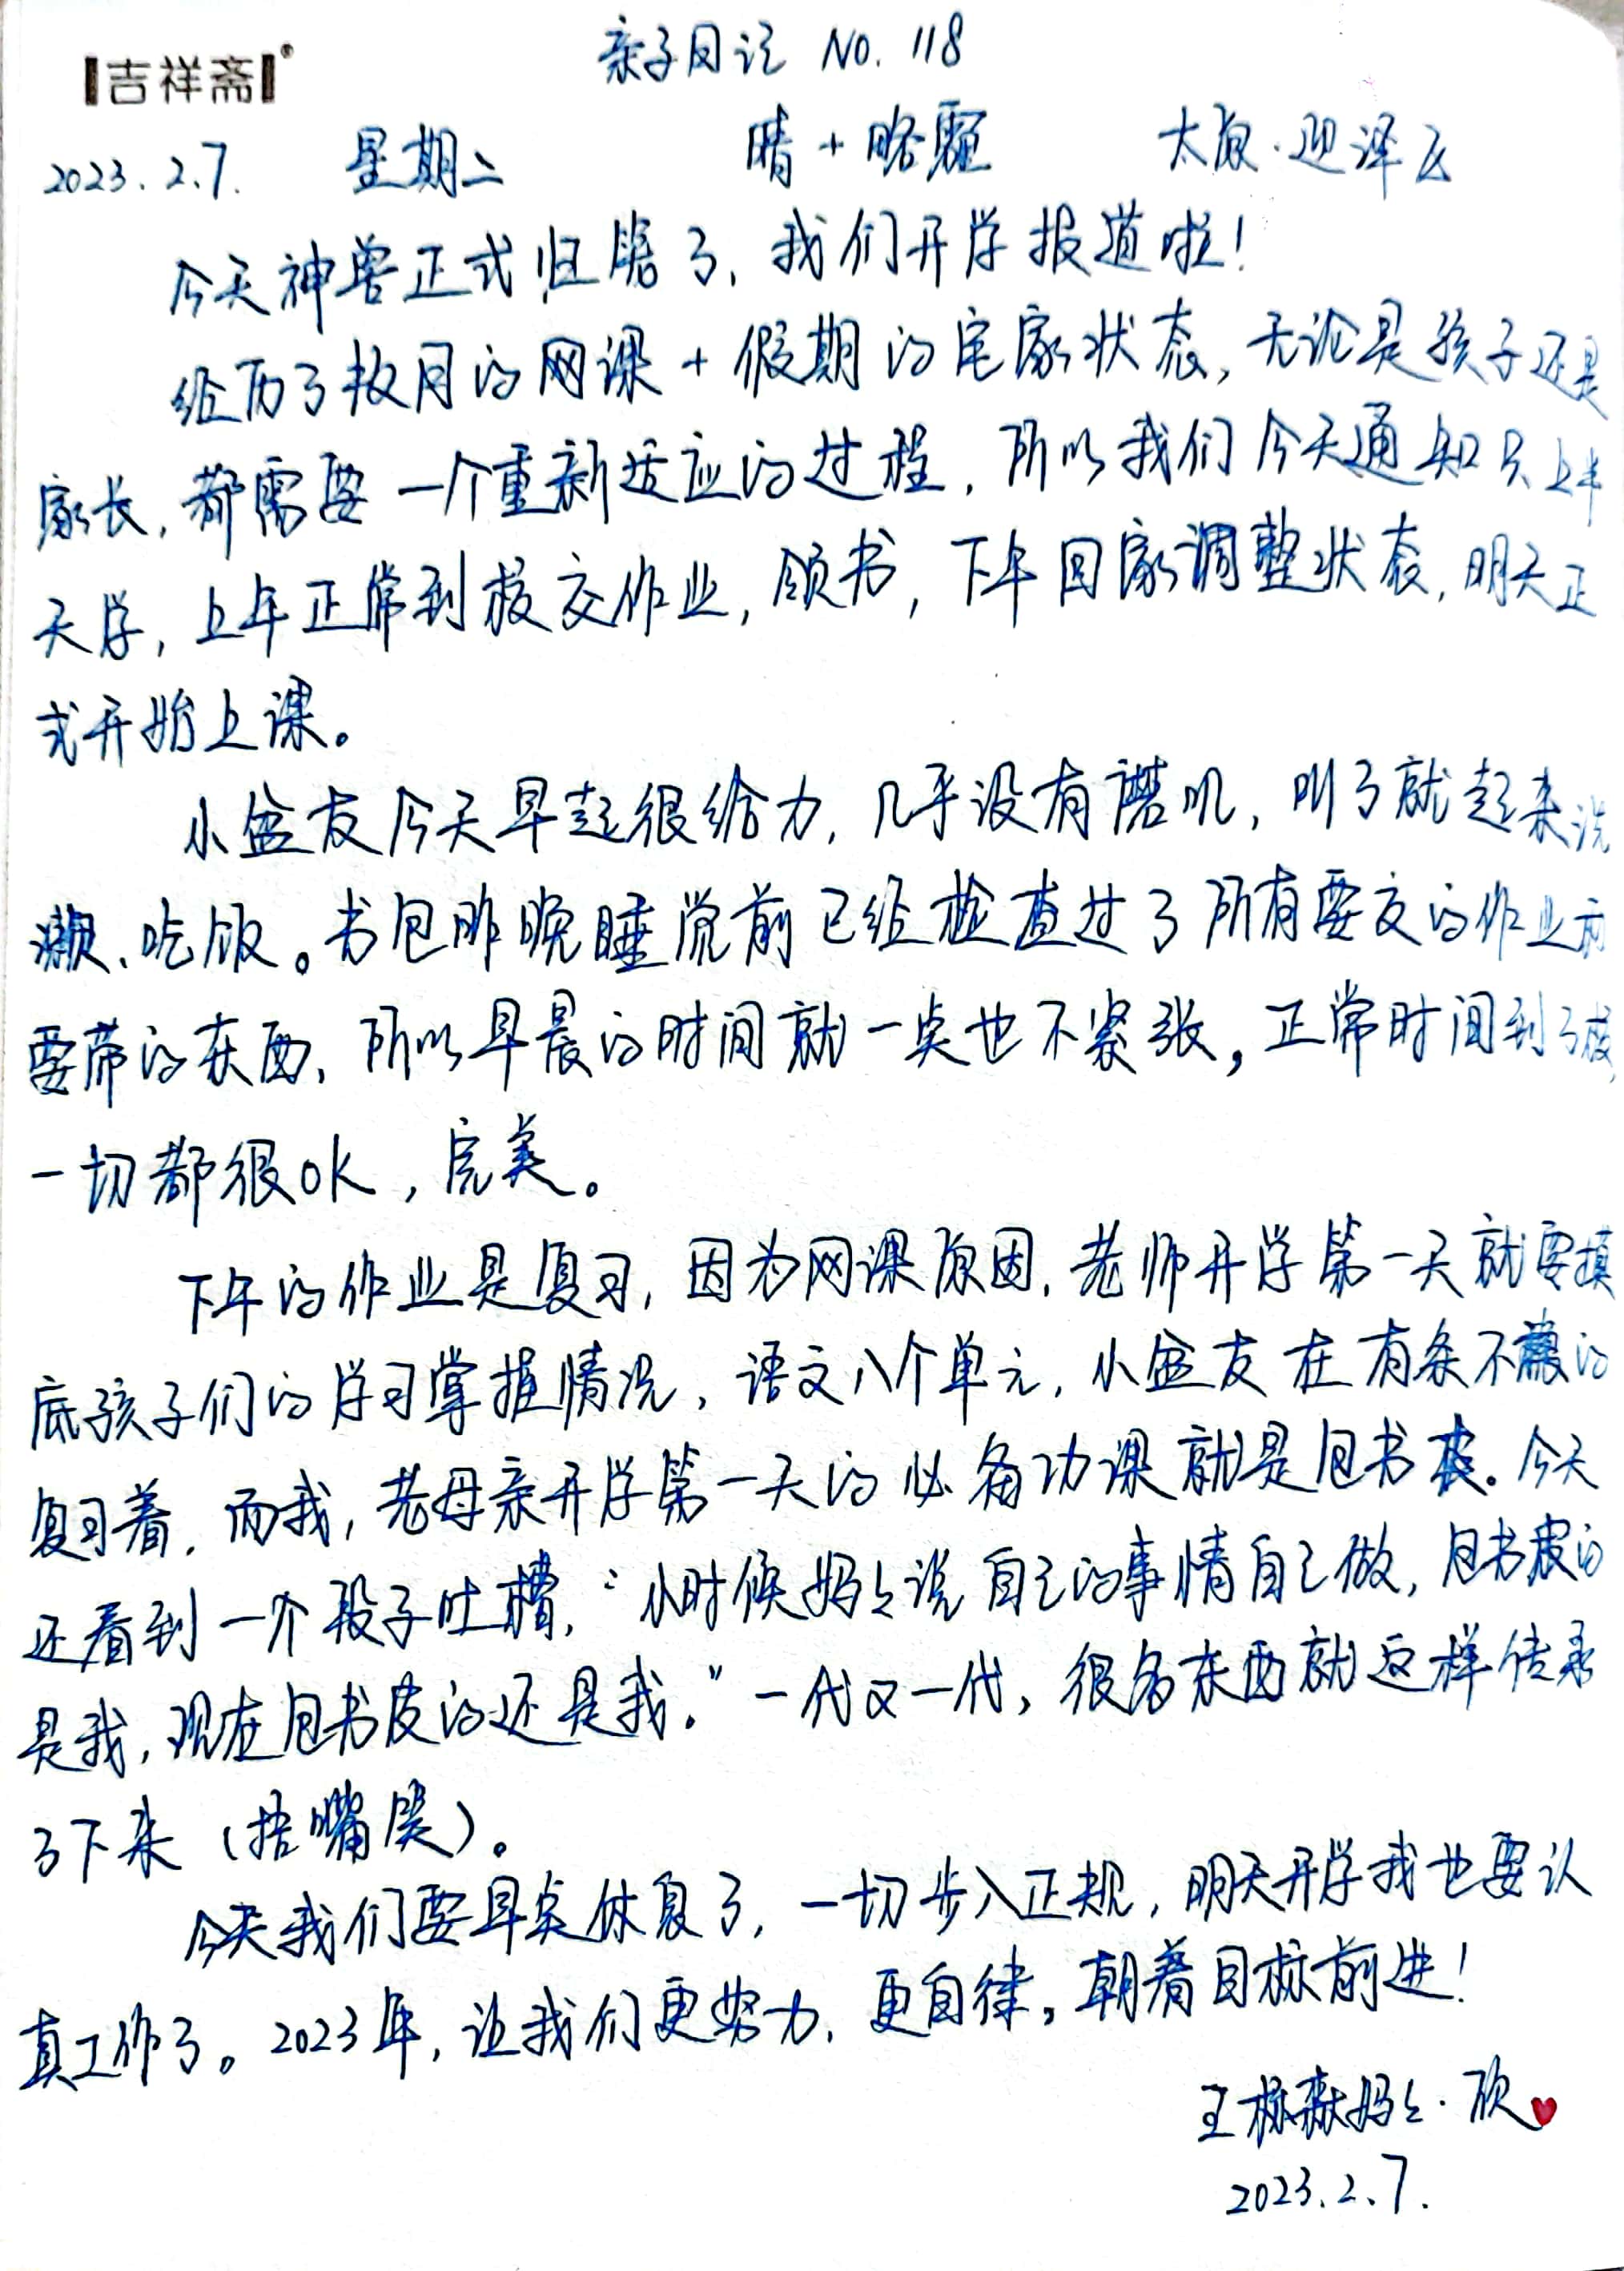 吉祥斋
亲子日记 NO. 118
2023.2.7. 星期二 晴+略霾 太原·迎泽区
今天神兽正式归笼了，我们开学报道啦！
经历了数月的网课+假期的宅家状态，无论是孩子还是
家长，都需要一个重新适应的过程，所以我们今天通知只上半
天学，上午正常到校交作业，领书，下午回家调整状态，明天正
式开始上课。
小盆友今天早起很给力，几乎没有磨叽，叫了就起来洗
漱、吃饭。书包昨晚睡觉前已经检查过了所有要交的作业前
要带的东西，所以早晨的时间就一点也不紧张，正常时间到了校，
一切都很OK，完美。
下午的作业是复习，因为网课原因，老师开学第一天就要摸
底孩子们的学习掌握情况，语文八个单元，小盆友在有条不紊的
复习着，而我，老母亲开学第一天的必备功课就是包书皮。今天
还看到一个段子吐槽，“小时候妈妈说自己的事情自己做，包书皮的
是我，现在包书皮的还是我。”一代又一代，很多东西就这样传承
了下来（捂嘴笑）。
今天我们要早点休息了，一切步入正规，明天开学我也要认
真工作了。2023年，让我们更努力，更自律，朝着目标前进！
王 妈妈·欣
2023.2.7.